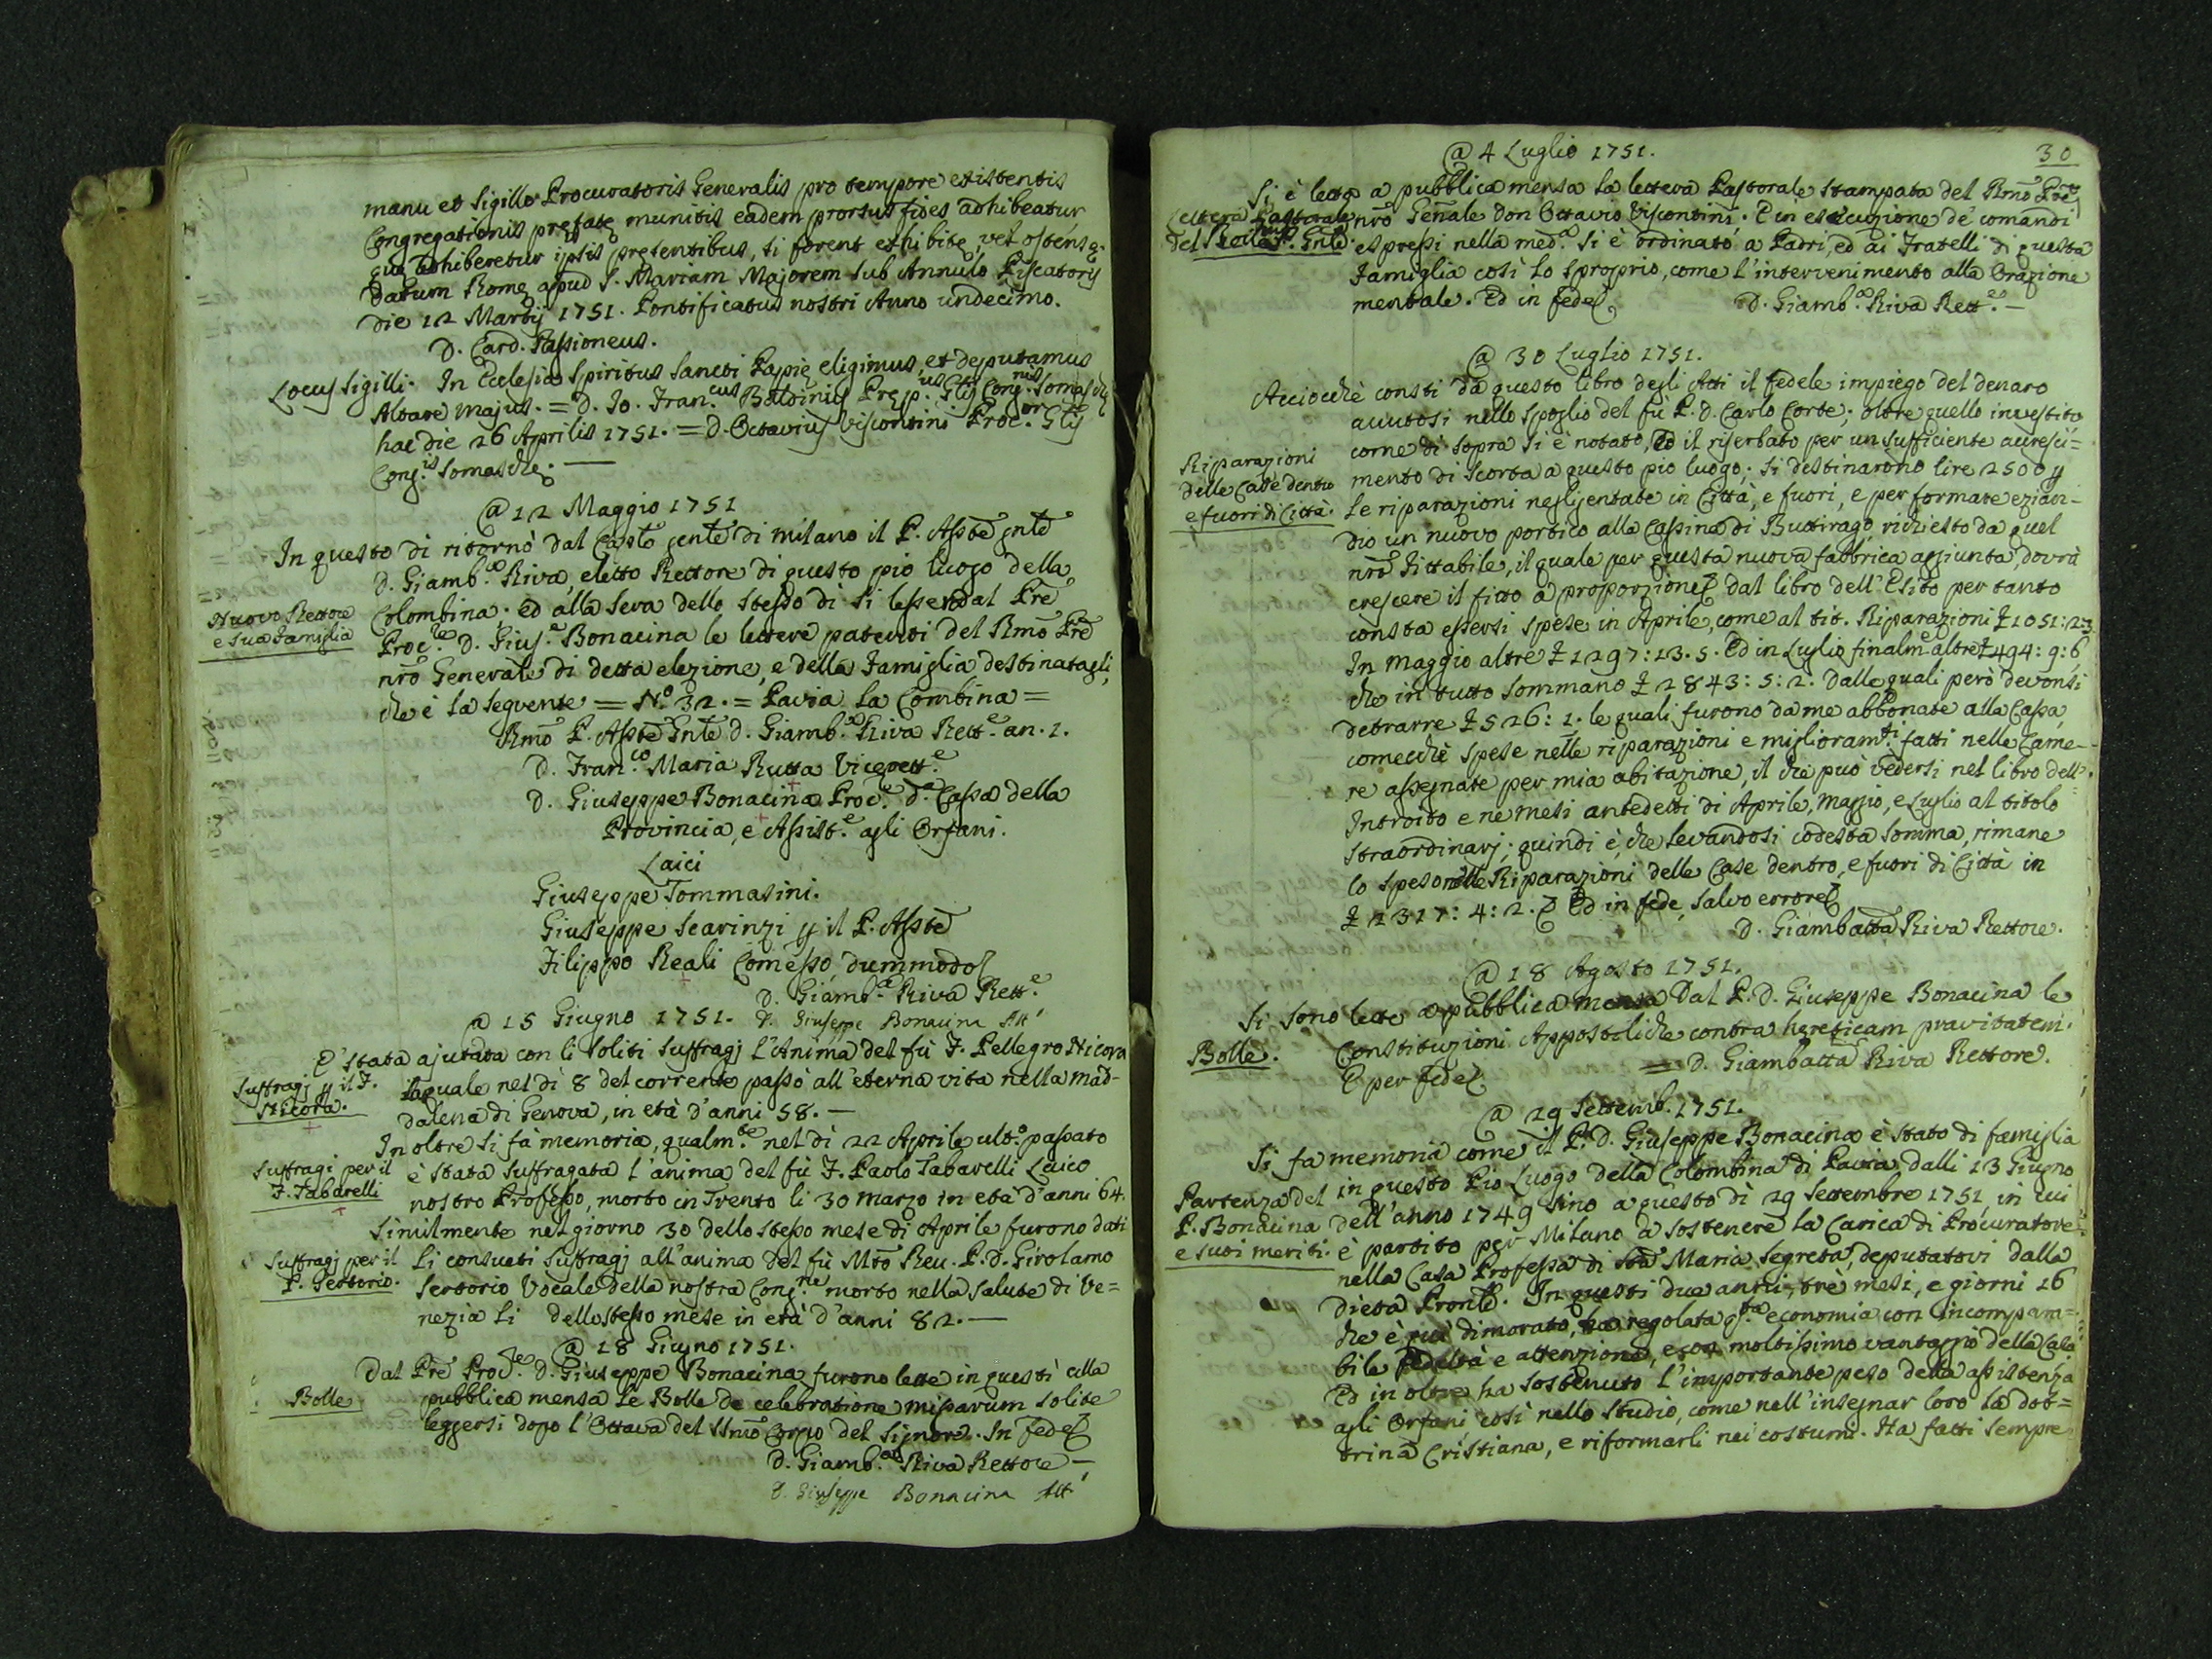 manu et sigillo Procuratoris Generalis pro tempore existentis
Congregationis prefatę munitis eadem prorsus fides adhibeatur
quę adhiberetur ipsis pręsentibus, si forent exhibitę, vel ostensę.
Datum Romę apud S. Mariam Majorem sub Annulo Piscatoris
die 12 Martij 1751. Pontificatus nostri Anno undecimo.
D. Card. Passioneus.
Locus Sigilli. In Ecclesia Spiritus Sancti Papię eligimus, et deputamus
Altare majus. = D. Jo. Fran.cus Baldinus Pręp.us Glis Cong.nis Somaschę
hac die 26 Aprilis 1751. = D. Octavius Viscontini Proc.or Glis
Cong.is Somaschę. —
@ 12 Maggio 1751
In questo dì ritornò dal Capto gente di milano il P. Asste gnle
D. Giamb.a Riva, eletto Rettore di questo pio luogo della
Nuovo Rettore
e sua famiglia
Colombina. Ed alla sera dello stesso dì si lessero dal Pre
Proc.re D. Gius.e Bonacina le lettere patenti del Rmo Pre
nro Generale di detta elezione, e della famiglia destinatagli,
che è la seguente = N.o 32. = Pavia la Combina =
Rmo P. Asste Gnle D. Giamb.a Riva Rett.e an. 1.
D. Fran.co Maria Rutta Vicerett.e
D. Giuseppe Bonacina Proc.e d.a Cassa della
Provincia, e Assist.e agli Orfani.
Laici
Giuseppe Tommasini.
Giuseppe Scarinzi p il P. Asste
Filippo Reali Comesso, dummodo
D. Giamb.a Riva Rett.e
@ 15 Giugno 1751. D. Giuseppe Bonacina Att.
E' stata ajutata con li soliti suffragj l'Anima del fù F. Pellegro Nicora
Suffragj p il F.
Nicora.
il quale nel dì 8 del corrente passò all'eterna vita nella Mad-
dalena di Genova, in età d'anni 58. —
Inoltre si fà memoria, qualm.te nel dì 22 Aprile ult.o passato
Suffragi per il
F. Tabarelli
è stata suffragata l'anima del fù F. Paolo Tabarelli Laico
nostro Professo, morto in Trento li 30 marzo in età d'anni 64.
Similmente nel giorno 30 dello stesso mese di Aprile furono dati
Suffragj per il
P. Sertorio.
li consueti suffragj all'anima del fù Mto Reu. P. D. Girolamo
Sertorio Vocale della nostra Cong.ne morto nella Salute di Ve=
nezia li dello stesso mese in età d'anni 82. —
@ 18 Giugno 1751.
Dal Pre Proc.re D. Giuseppe Bonacina furono lette in questi alla
Bolle
pubblica mensa le Bolle de celebratione missarum solite
leggersi dopo l'Ottava del SSmo Corpo del Signore. In fede
D. Giamb.a Riva Rettore —
D. Giuseppe Bonacina Att.
30
@ 4 Luglio 1751.
Si è letta a pubblica mensa la lettera Pastorale stampata del Rmo Pre
Lettera Pastorale
del P. Gnle.
nro Genale Don Ottavio Viscontini. E in esecuzione de' comandi
espressi nella med.a si è ordinato a Padri, ed ai Fratelli di questa
famiglia così lo sproprio, come l'intervenimento alla Orazione
mentale. Ed in fede
D. Giamb.a Riva Rett.e —
@ 30 Luglio 1751.
Acciocchè consti da questo libro degli Atti il fedele impiego del denaro
auutosi nello spoglio del fù P. D. Carlo Corte; oltre quello inuestito
come di sopra si è notato, ed il riserbato per un sufficiente accresci=
Riparazioni
delle Case dentro
e fuori di Città.
mento di scorta a questo pio luogo; si destinarono lire 2500 p
le riparazioni negligentate in Città, e fuori, e per formare ezian-
dio un nuovo portico alla Cassina di Buttirago, richiesto da quel
nro fittabile, il quale per questa nuova fabbrica aggiunta, dovrà
crescere il fitto a proporzione. Dal libro dell'Esito per tanto
consta essersi spese in Aprile, come al tit. Riparazioni £ 1051:
In maggio altre £ 1297:13.5. Ed in Luglio finalm.e altre £ 494:9:6
che in tutto sommano £ 2843:5:2. Dalle quali però devonsi
detrarre £ 526:1. le quali furono da me abbonate alla Cassa,
comecchè spese nelle riparazioni e miglioram.ti fatti nelle Came-
re assegnate per mia abitazione, il che può vedersi nel libro dell'
Introito e ne' mesi antedetti di Aprile, maggio, e Luglio al titolo
straordinarj; quindi è, che levandosi codesta somma, rimane
lo speso nelle Riparazioni delle Case dentro, e fuori di Città in
£ 2317:4:2. Ed in fede, salvo errore
D. Giambatta Riva Rettore.
@ 18 Agosto 1751.
Si sono lette a pubblica mensa dal P. D. Giuseppe Bonacina le
Bolle.
Constituzioni Appostoliche contra hęreticam pravitatem.
E per fede
= D. Giambatta Riva Rettore.
@ 29 Settemb. 1751.
Si fa memoria come il P. D. Giuseppe Bonacina è stato di famiglia
Partenza del
P. Bonacina
e suoi meriti.
in questo Pio Luogo della Colombina di Pavia dalli 13 Giugno
dell'anno 1749 sino a questo dì 29 Settembre 1751 in cui
è partito per Milano a sostenere la Carica di Procuratore
nella Casa Professa di Sta Maria Segreta, deputatovi dalla
dieta Pronle. In questi due anni, tre mesi, e giorni 16
che è quì dimorato, ha regolata q.sta economia con incompara=
bile fedeltà e attenzione, e con moltissimo vantaggio della Casa
Ed in oltre ha sostenuto l'importante peso della assistenza
agli Orfani così nello studio, come nell'insegnar loro la dot=
trina Cristiana, e riformarli nei costumi. Ha fatti sempre